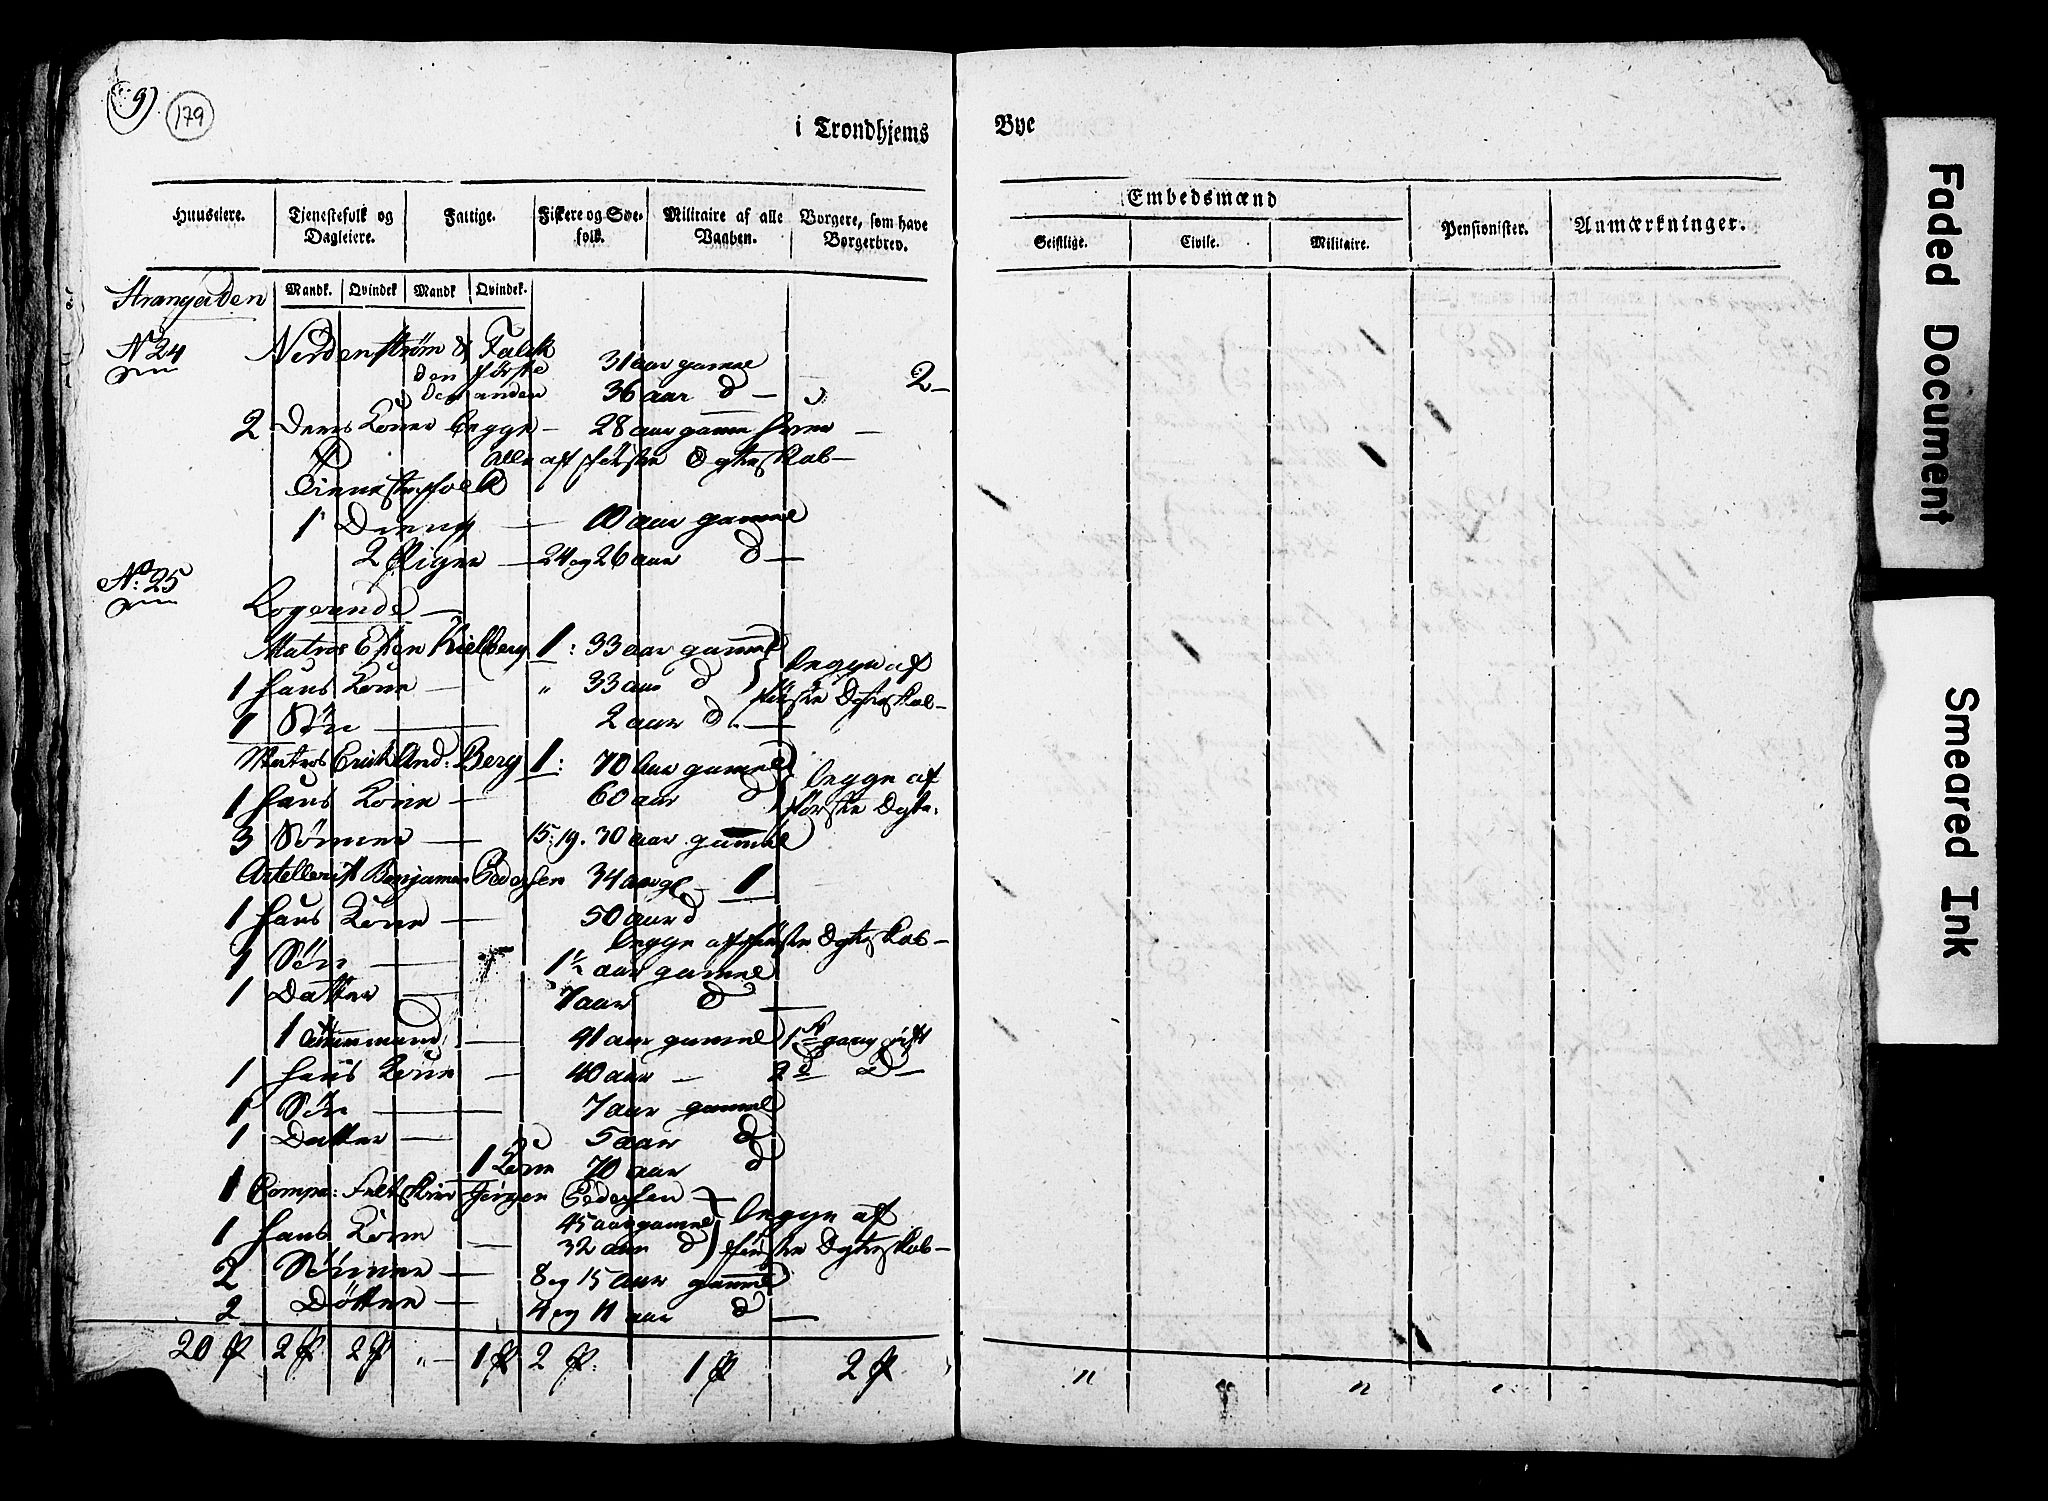 9)
179
i Trondhjems
Bye
Huuseiere.
Tjenestefolk og Dagleiere.
Fattige.
Fiskere og Søe-folk.
Militaire af alle Vaaben.
Borgere, som have Borgerbrev.
Embedsmænd
Geistlige.
Civile.
Militaire.
Pensionister.
Anmærkninger.
Mandk.
Qvindek
Mandk
Qvindek.
Strangaden
No 24
Nordenstrøm & Falck
den første 31 aar gamel
den anden 36 aar d — 2 —
2 Deres Koner begge — 28 aar
alle af første Ægteskab —
Tienestefolk
1 Dreng — aar gamel
2 Piger — 24 og 26 aar d —
No: 25
Logerende —
Matros Kielberg 1: 33 aar gamel
1 Hans Kone — " 33 aar d
begge af første Ægteskab —
1 Søn — 2 aar d —
Matros Erich And: Berg 1: 70 aar gamel
1 Hans Kone — 60 aar d
begge af første Ægte:
3 Sønner — 15: 19. 30 aar gamel
Artellerist Benjamin Pedersen 34 aar gl — 1
1 Hans Kone — 50 aar d
begge af første Ægteskab —
1 Søn — 1½ aar gamel
1 Datter — 7 aar d —
1 — 41 aar gamel 1ste gang gift
1 Hans Kone — 40 aar — 2d d —
1 Søn — 7 aar gamel
1 Datter — 5 aar d
1 Kone 70 aar d
1 Compa: Feltskier Jørgen Pedersen
45 aar gamel begge af
1 Hans Kone — 32 aar d første Ægteskab —
2 Sønner — 8 og 15 aar gamel
2 Døttre — 4 og 11 aar d —
20 P 2 P 2 P " — 1 P 2 P. 1 P 2 P
Faded Document
Smeared Ink